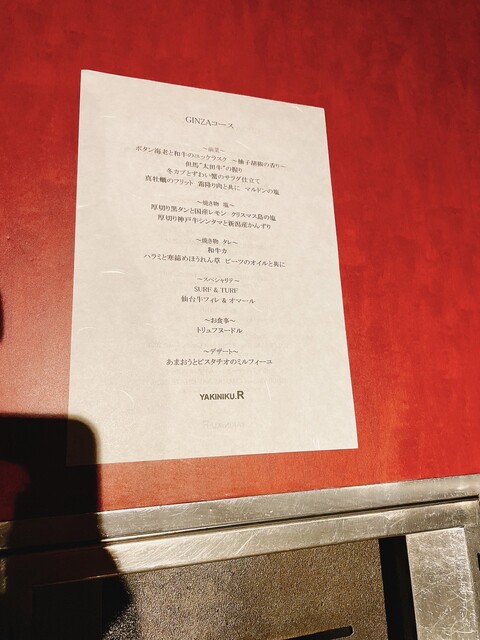 GINZAコース
～前菜～
ボタン海老と和牛のユッケラスク ～柚子胡椒の香り～
但馬"太田牛"の握り
冬カブとずわい蟹のサラダ仕立て
真牡蠣のフリット 霜降り肉と共に マルドンの塩
～焼き物 塩～
厚切り黒タンと国産レモン クリスマス島の塩
厚切り神戸牛シンタマと新潟産かんずり
～焼き物 タレ～
和牛カ
ハラミと寒締めほうれん草 ビーツのオイルと共に
～スペシャリテ～
SURF & TURF
仙台牛フィレ & オマール
～お食事～
トリュフヌードル
～デザート～
あまおうとピスタチオのミルフィーユ
YAKINIKU.R